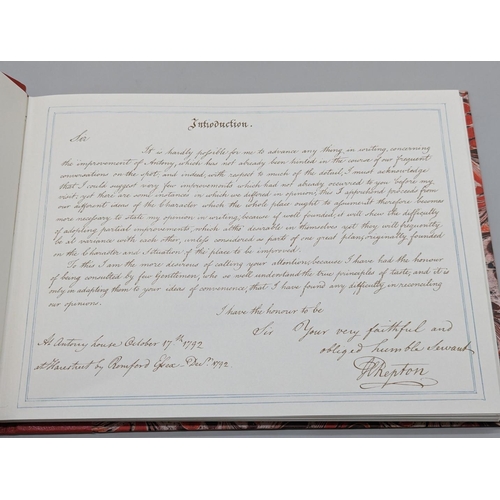 Introduction.
Sir
It is hardly possible for me to advance any thing, in writing, concerning
the improvement of Antony, which has not already been hinted in the course of our frequent
conversations on the spot; and indeed, with respect to much of the detail, I must acknowledge
that I could suggest very few improvements which had not already occurred to you before my
visit: yet there are some instances in which we differed in opinion; this I apprehend proceeds from
our different ideas of the Character which the whole place ought to assume; it therefore becomes
more necessary to state my opinion in writing, because if well founded, it will shew the difficulty
of adopting partial improvements, which, altho' desirable in themselves yet they will frequently
be at variance with each other, unless considered as parts of one great plan, originally founded
in the Character and Situation of the place to be improved.
To this I am the more desirous of calling your attention, because I have had the honour
of being consulted by few Gentlemen, who so well understand the true principles of taste; and it is
only in adapting them to your ideas of convenience, that I have found any difficulty in reconciling
our opinions.
I have the honour to be
Sir Your very faithful and
obliged humble Servant
At Antony house October 17th 1792
at Harestreet by Romford Essex Decr. 1792.
H Repton